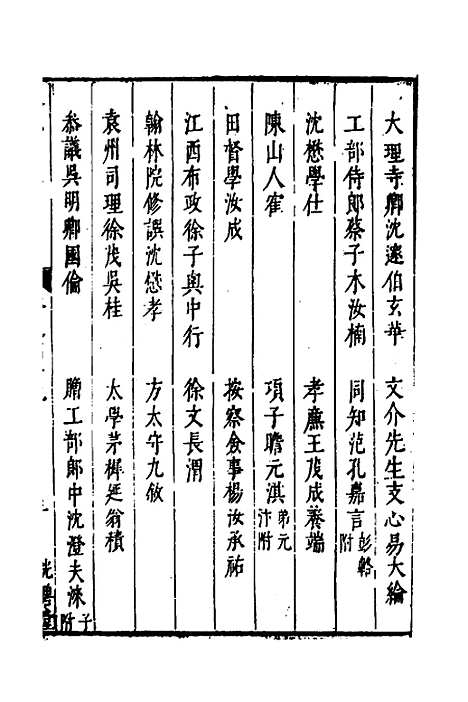 大理寺卿沈䢴伯玄華　文介先生支心易大綸
工部侍郎蔡子木汝楠　同知范孔嘉言彭輅附
沈懋學仕　孝廉王茂成養端
陳山人寉　項子瞻元淇弟元汴附
田督學汝成　按察僉事楊汝承祐
江西布政徐子與中行　徐文長渭
翰林院修譔沈懋孝　方太守九敘
袁州司理徐茂吳桂　太學茅稚延翁積
叅議吳明卿國倫　贈工部郎中沈澄夫淶子附